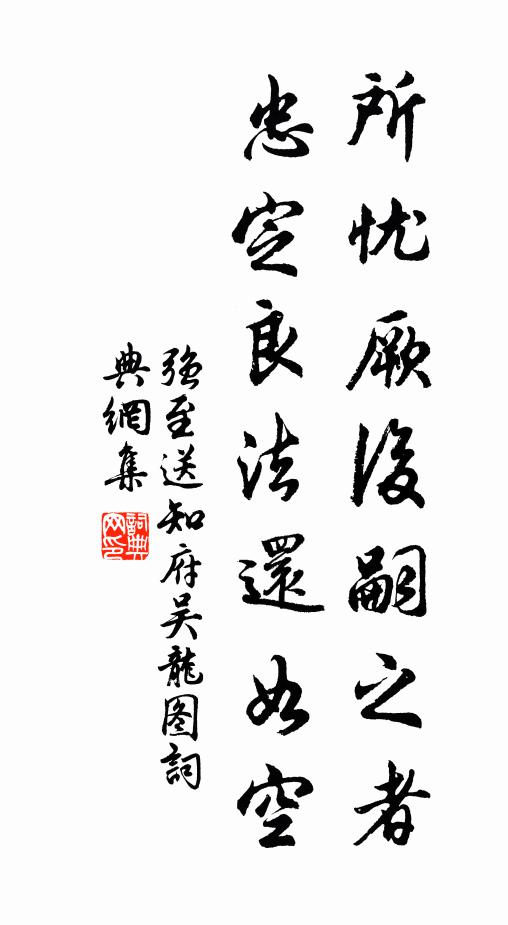 所忧厥後嗣之者
忠定良法還如空
强至送知府吴龍图詞
典網集
詞典網印